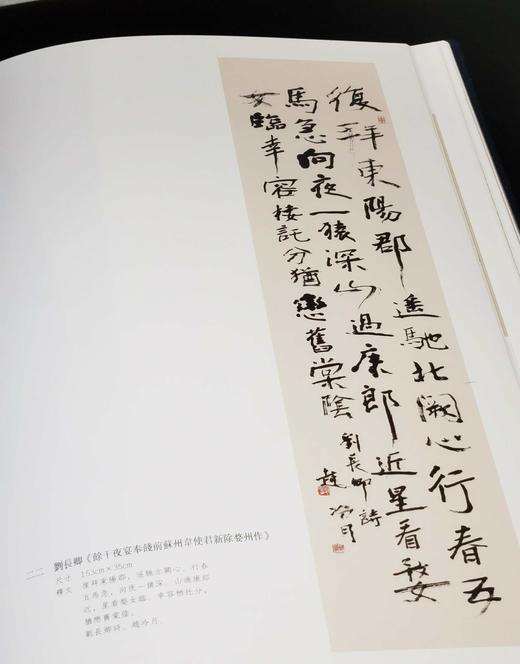 復拜東陽郡遥馳北闕心行春五
馬急向夜一猿深山過康郎近星看婺
女臨幸容棲託分猶戀舊棠陰
劉長卿詩
趙冷月
二二 劉長卿《餘干夜宴奉餞前蘇州韋使君新除婺州作》
尺寸 153cm×35cm
釋文 復拜東陽郡，遥馳北闕心。行春
五馬急，向夜一猿深。山過康郎
近，星看婺女臨。幸容栖托分，
猶戀舊棠陰。
劉長卿詩。趙冷月。